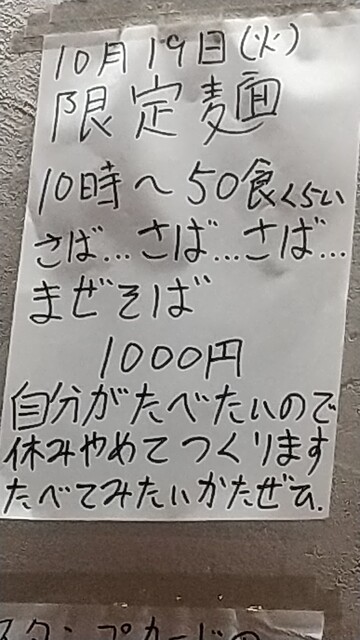 10月19日(火)
限定麺
10時～50食くらい
さば…さば…さば…
まぜそば
1000円
自分がたべたいので
休みやめてつくります
たべてみたいかたぜひ.
スタンプカードの